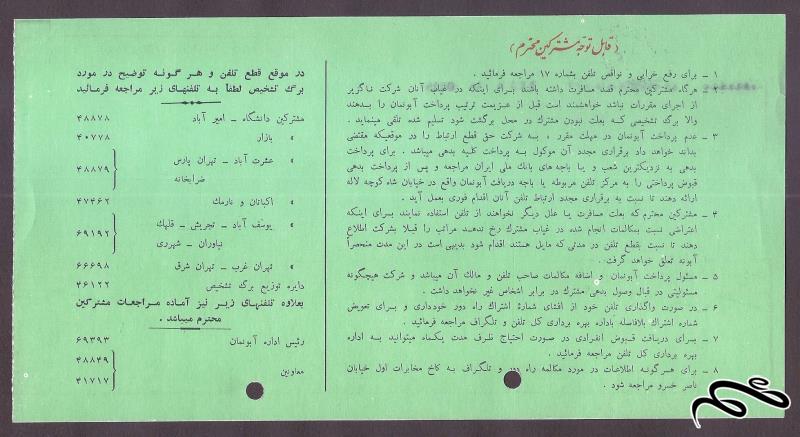 (قابل توجه مشترکین محترم)
۱ ــ برای رفع خرابی و نواقص تلفن بشماره ۱۷ مراجعه فرمائید.
۲ ــ هرگاه مشترکین محترم قصد مسافرت داشته باشند برای اینکه در غیاب آنان شرکت ناگزیر
از اجرای مقررات نباشد خواهشمند است قبل از عزیمت ترتیب پرداخت آبونمان را بدهند
والا برگ تشخیصی که بعلت نبودن مشترک در محل برگشت شود تسلیم شده تلقی مینماید .
۳ ــ عدم پرداخت آبونمان در مهلت مقرر ، بــه شرکت حق قطع ارتباط را درموقعیکه مقتضی
بداند خواهد داد برقراری مجدد آن موکول بــه پرداخت کلیه بدهی میباشد . برای پرداخت
بدهی به نزدیکترین شعب و یـا باجه‌های بانك ملی ایران مراجعه و پس از پرداخت بدهی
قبوض پرداختی را به مرکز تلفن مربوطه یا باجه دریافت آبونمان واقع در خیابان شاه کوچه لاله
ارائه دهند تا نسبت به برقراری مجدد ارتباط تلفن آنان اقدام فوری بعمل آید .
۴ ــ مشترکین محترم که بعلت مسافرت یـا علل دیگر نخواهند از تلفن استفاده نمایند بـرای اینکه
اعتراضی نسبت بمکالمات انجام شده در غیاب مشترک رخ ندهـد مراتب را قبلا بشرکت اطلاع
دهند تا نسبت بقطع تلفن در مدتی که مایل هستند اقدام شود بدیهی است در این مدت منحصراً
آبونه تعلق خواهد گرفت .
۵ ــ مسئول پرداخت آبونمان و اضافه مکالمات صاحب تلفن و مالك آن میباشد و شرکت هیچگونه
مسئولیتی در قبال وصول بدهی مشترك در برابر اشخاص غیر نخواهد داشت .
۶ ــ در صورت واگذاری تلفن خود از افشای شمارهٔ اشتراك راه دور خودداری و بـرای تعویض
شماره اشتراك بلافاصله باداره بهره برداری کل تلفن و تلگراف مراجعه فرمائید .
۷ ــ بـرای دریافت قبـوض انفرادی در صورت احتیاج ظـرف مدت یکماه میتوانید بـه اداره
بهره برداری کل تلفن مراجعه فرمائید .
۸ ــ برای هـرگونه اطلاعات در مورد مکالمه راه دور و تلگراف بـه کاخ مخابرات اول خیابان
ناصر خسرو مراجعه شود .
در موقع قطع تلفن و هـر گونـه توضیح در مورد
برگ تشخیص لطفاً بـه تلفنهای زیر مراجعه فرمائید
مشترکین دانشگاه ــ امیر آباد ۴۸۸۷۸
» بازار ۴۰۷۷۸
» عشرت آباد ــ تهران پارس
ضرابخانه ۴۸۸۷۹
» اکباتان و نارمك ۴۷۴۶۲
» یوسف آباد ــ تجریش ــ قلهك
نیاوران ــ شهرری ۶۹۱۹۲
» تهران غرب ــ تهران شرق ۶۶۶۹۸
دایره توزیع برگ تشخیص ۴۶۱۲۲
بعلاوه تلفنهای زیـر نیز آماده مـراجعات مشترکین
محترم میباشد .
رئیس اداره آبونمان ۶۹۳۹۳
معاونین ۴۸۸۴۹
۴۱۷۱۷